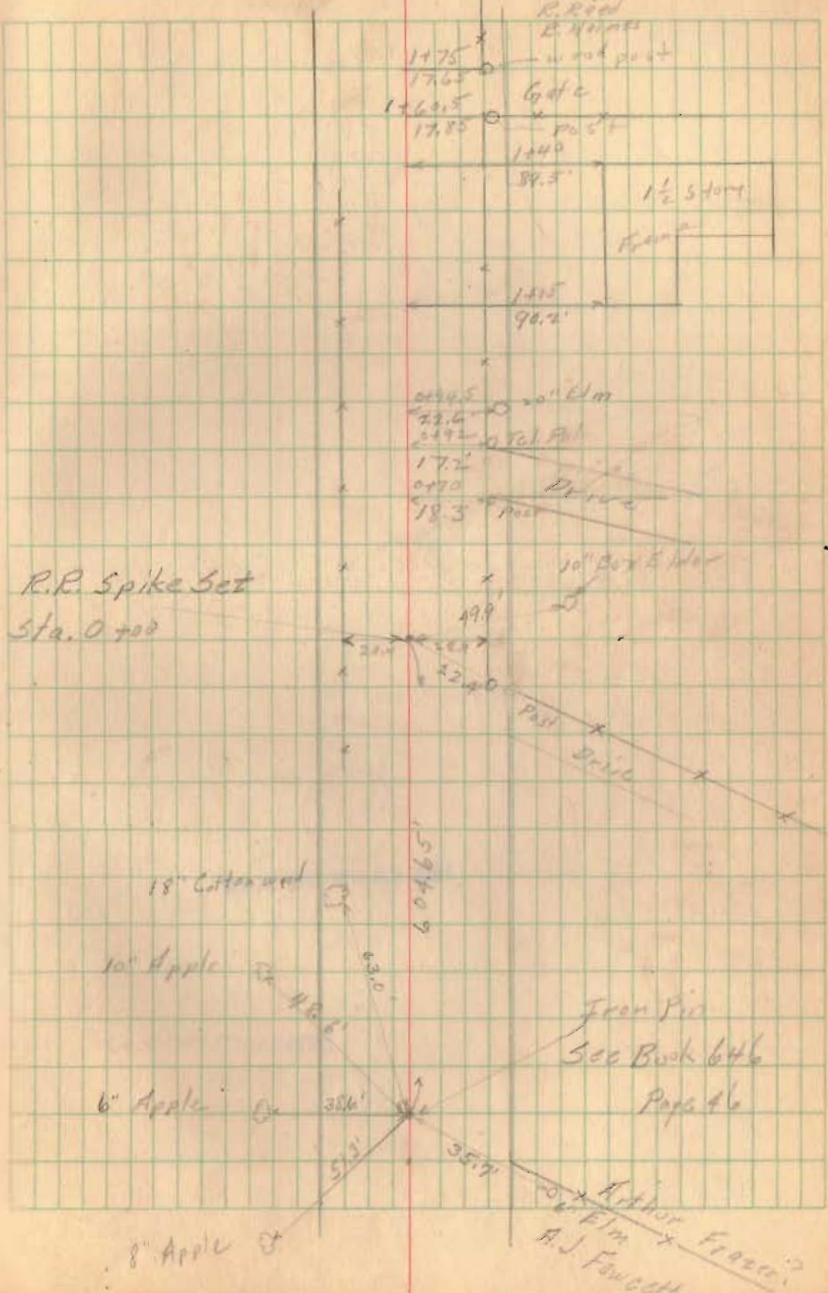 R. Reed
R. Holmes
1+75
17.65
wood post
1+60.5
17.85
Gate
post
1+40
89.5'
1 1/2 Story
Frame
1+15
90.2'
0+94.5
22.6
20" Elm
0+92
17.2'
Tel. Pole
Drive
0+70
18.3'
Post
10" Box Elder
49.9'
R.R. Spike Set
Sta. 0+00
22.4
Post
Drive
604.65'
18" Cottonwood
63.0'
10" Apple
48.6'
Iron Pin
See Book 646
Page 46
6" Apple
38.6'
51.3'
35.7'
8" Apple
6" Elm
Arthur Frazer?
A.J. Fawcett